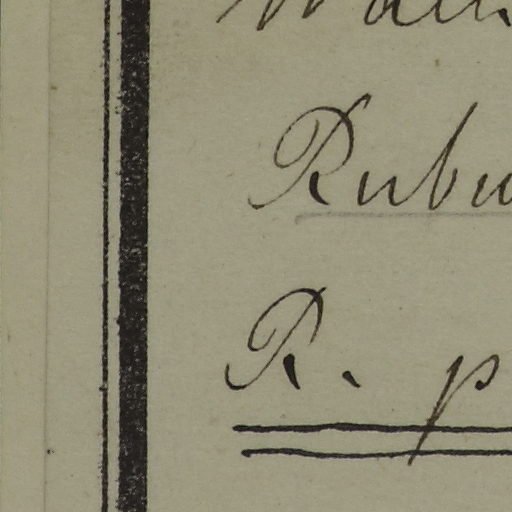 Rubu
R. p